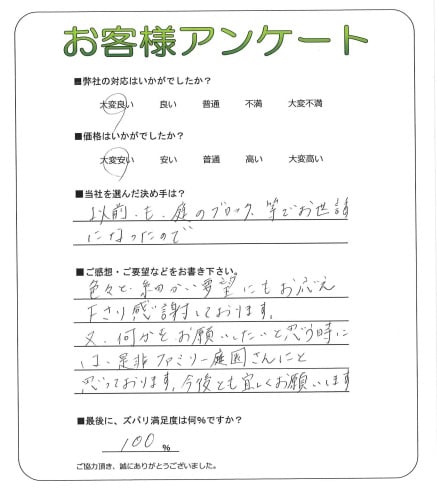 お客様アンケート
■弊社の対応はいかがでしたか？
大変良い 良い 普通 不満 大変不満
■価格はいかがでしたか？
大変安い 安い 普通 高い 大変高い
■当社を選んだ決め手は？
以前、も、庭のブロック、等でお世話
になったので
■ご感想・ご要望などをお書き下さい。
色々と、細かい要望にもお応え
下さり感謝しております。
又、何かをお願いしたいと思う時に
は、是非ファミリー庭園さんにと
思っております。今後とも宜しくお願いします
■最後に、ズバリ満足度は何%ですか？
100 %
ご協力頂き、誠にありがとうございました。